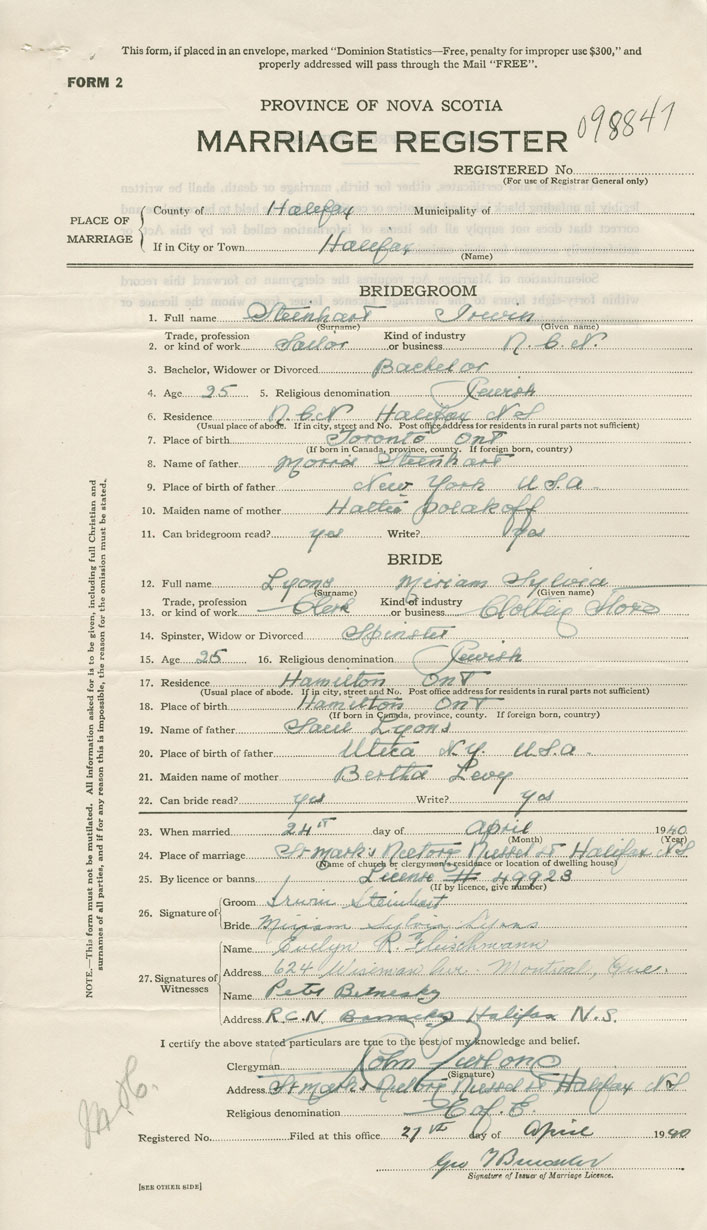 This form, if placed in an envelope, marked "Dominion Statistics—Free, penalty for improper use $300," and
properly addressed will pass through the Mail "FREE".
FORM 2
PROVINCE OF NOVA SCOTIA
MARRIAGE REGISTER
098847
REGISTERED No.
(For use of Registrar General only)
PLACE OF MARRIAGE
County of Halifax Municipality of
If in City or Town Halifax
(Name)
BRIDEGROOM
1. Full name Steinhart Irwin
(Surname) (Given name)
2. Trade, profession or kind of work Sailor Kind of industry or business R.C.N.
3. Bachelor, Widower or Divorced Bachelor
4. Age 25 5. Religious denomination Jewish
6. Residence R.C.N Halifax NS
(Usual place of abode. If in city, street and No. Post office address for residents in rural parts not sufficient)
7. Place of birth Toronto Ont
(If born in Canada, province, county. If foreign born, country)
8. Name of father Morris Steinhart
9. Place of birth of father New York U.S.A.
10. Maiden name of mother Hattie Polakoff
11. Can bridegroom read? yes Write? yes
BRIDE
12. Full name Lyons Miriam Sylvia
(Surname) (Given name)
13. Trade, profession or kind of work Clerk Kind of industry or business Clothing Store
14. Spinster, Widow or Divorced Spinster
15. Age 25 16. Religious denomination Jewish
17. Residence Hamilton Ont
(Usual place of abode. If in city, street and No. Post office address for residents in rural parts not sufficient)
18. Place of birth Hamilton Ont
(If born in Canada, province, county. If foreign born, country)
19. Name of father Saul Lyons
20. Place of birth of father Utica N.Y. U.S.A.
21. Maiden name of mother Bertha Levy
22. Can bride read? yes Write? yes
23. When married 24th day of April 1940
(Month) (Year)
24. Place of marriage St Mark's Rectory Russel St Halifax NS
(Name of church or clergyman's residence or location of dwelling house)
25. By licence or banns License # 49923
(If by licence, give number)
26. Signature of
Groom Irwin Steinhart
Bride Miriam Sylvia Lyons
27. Signatures of Witnesses
Name Evelyn R. Fleischmann
Address 624 Wiseman Ave. Montreal, Que.
Name Peter
Address R.C.N. Barracks Halifax N.S.
I certify the above stated particulars are true to the best of my knowledge and belief.
Clergyman John Furlong
(Signature)
Address St Mark's Rectory Russel St Halifax NS
Religious denomination C of E.
Registered No. Filed at this office 27th day of April 1940
Geo
Signature of Issuer of Marriage Licence.
[SEE OTHER SIDE]
NOTE.—This form must not be mutilated. All information asked for is to be given, including full Christian and
surnames of all parties, and if for any reason this is impossible, the reason for the omission must be stated.